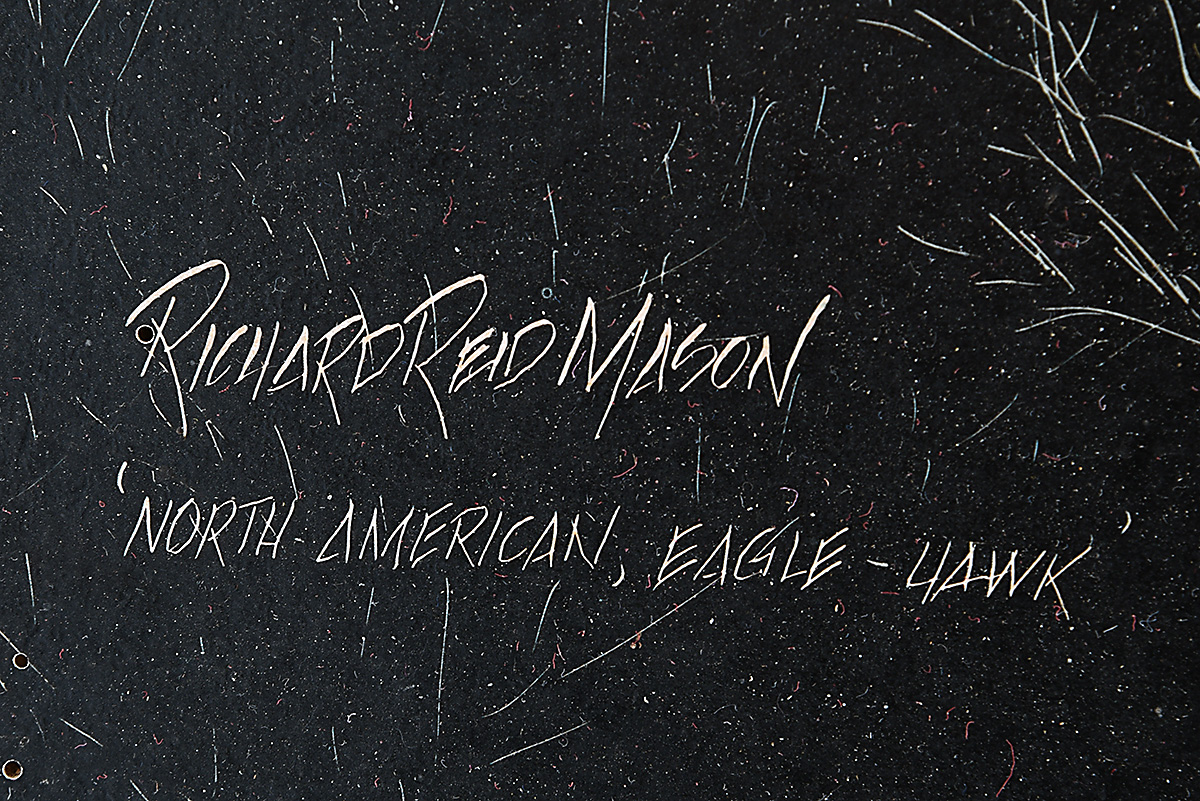 RICHARD REID MASON
'NORTH-AMERICAN, EAGLE-HAWK'